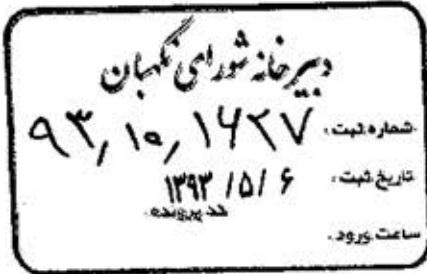 دبیرخانه شورای نگهبان
شماره ثبت: ۹۳/۱۰/۱۶۲۷
تاریخ ثبت: ۱۳۹۳/۵/۶
کد پرونده:
ساعت ورود: